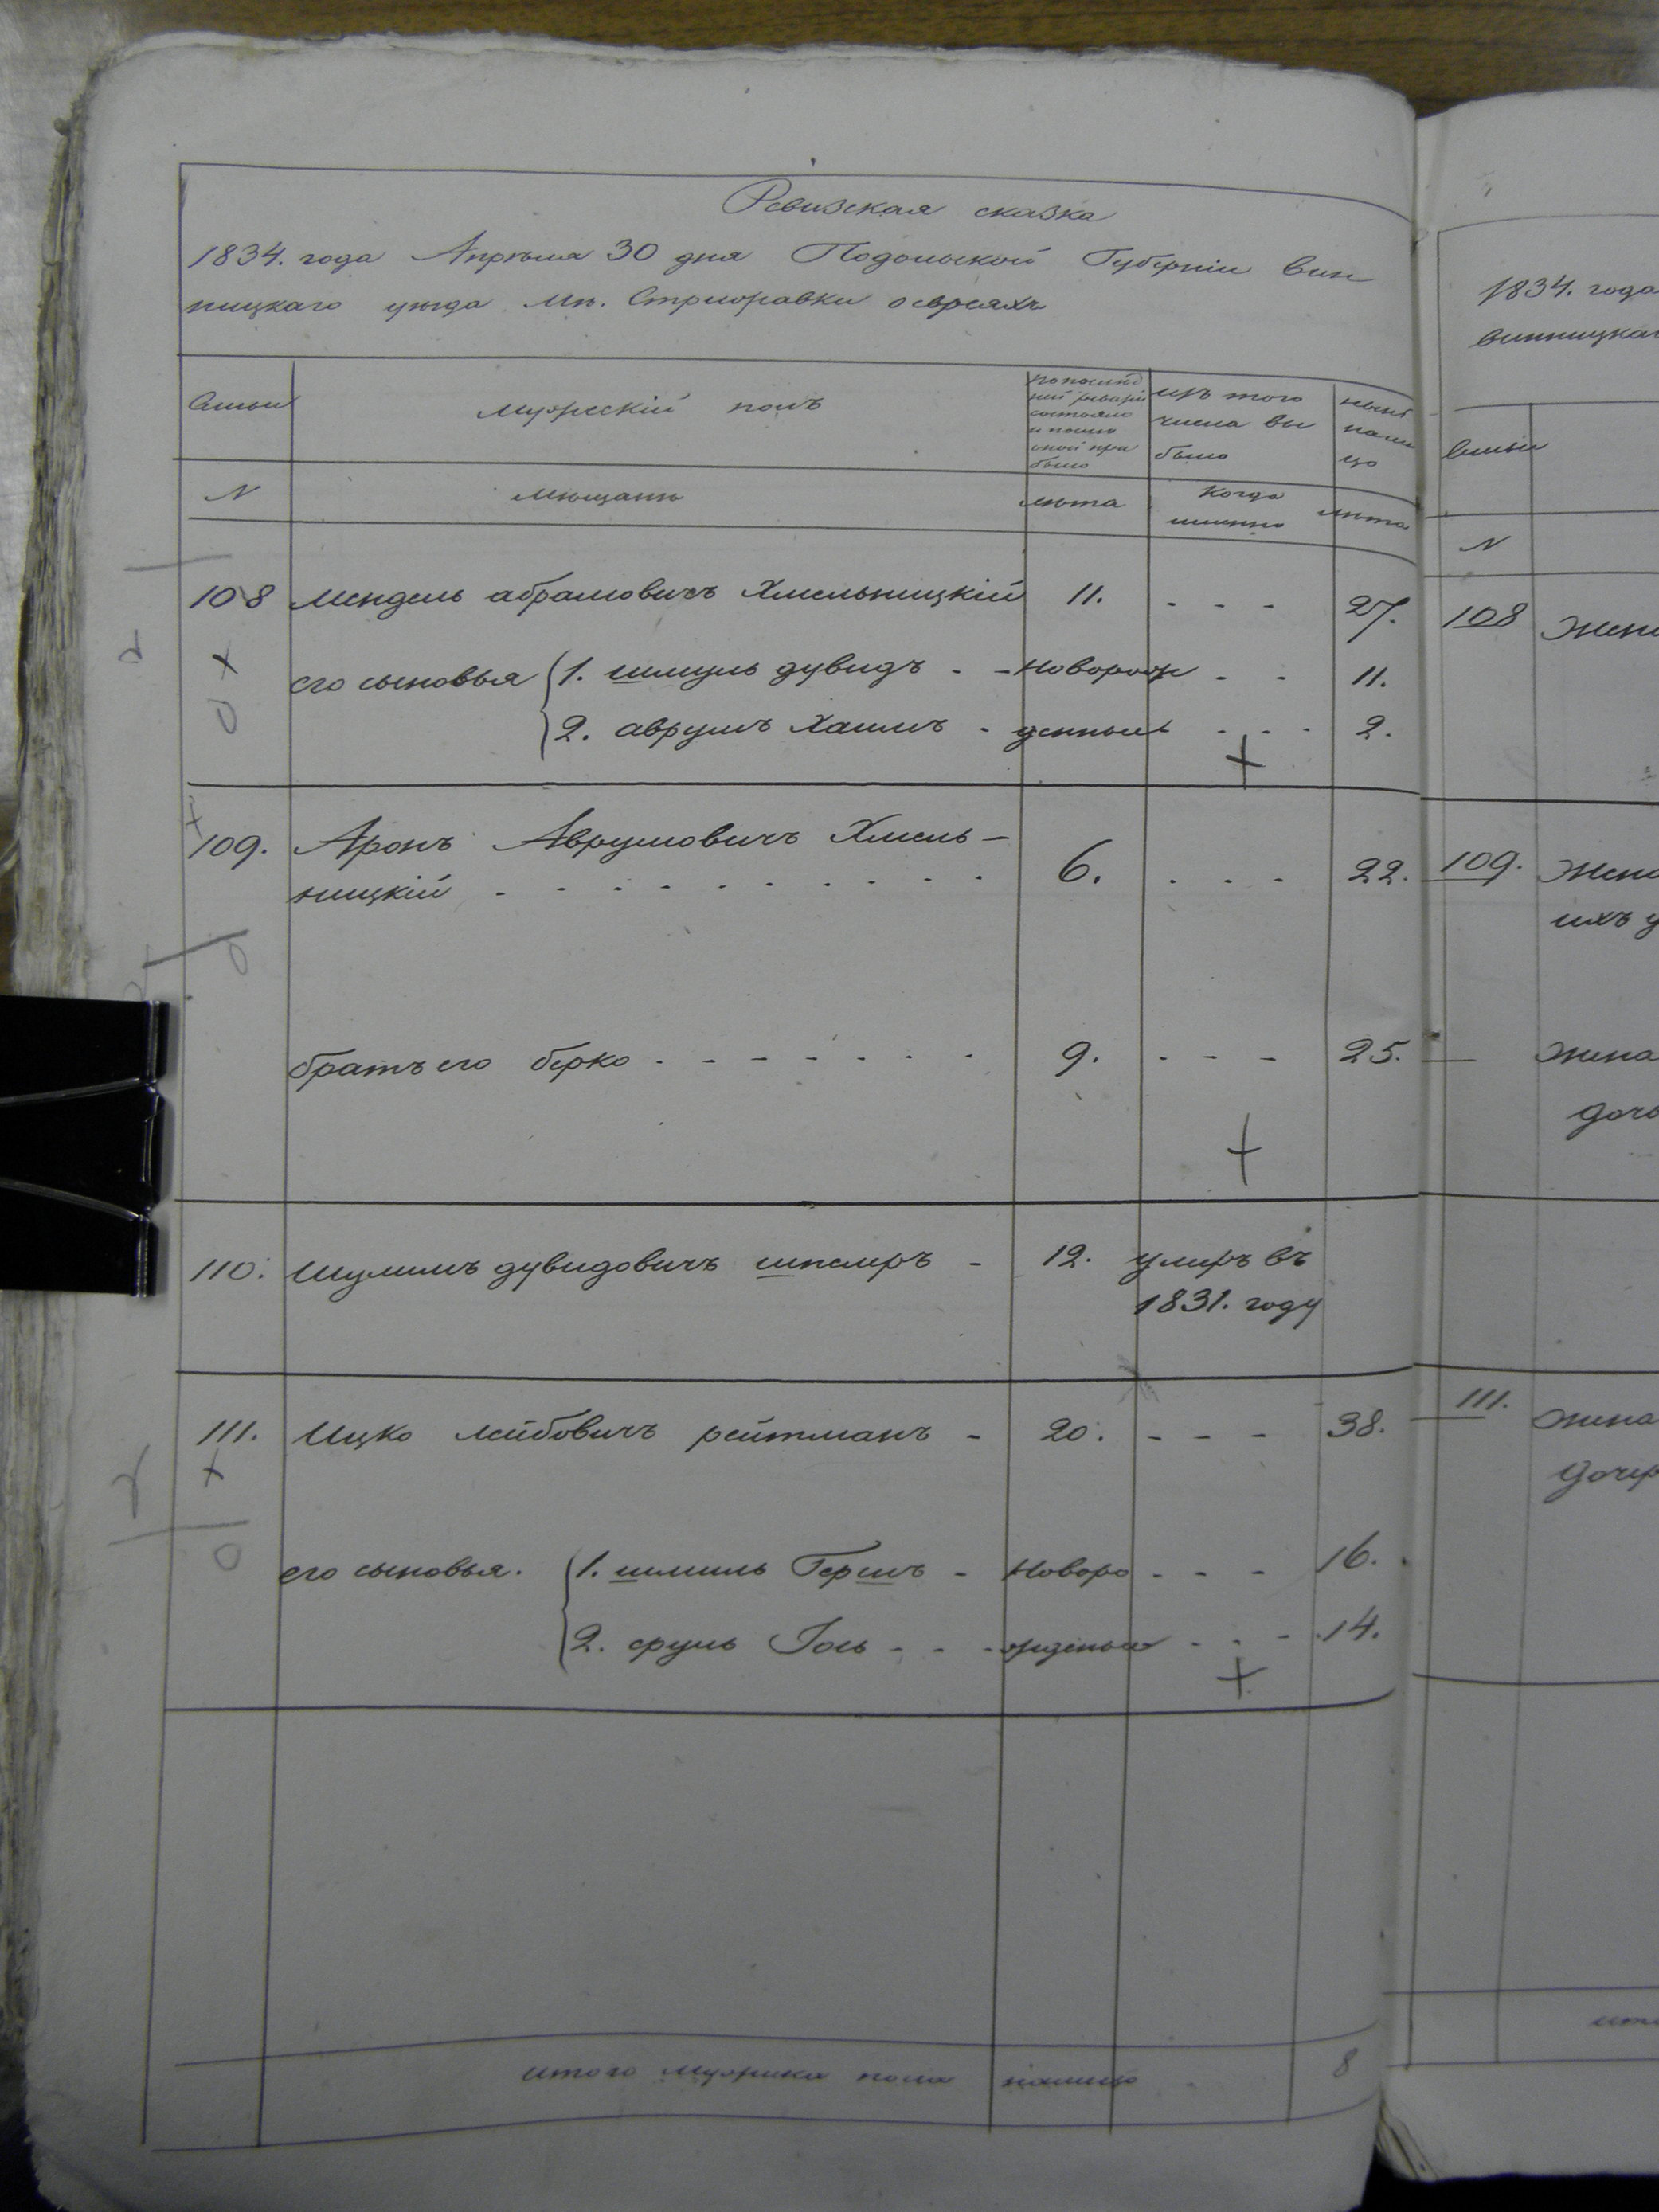 Ревизская сказка
1834. года Апрѣля 30 дня Подольской Губерніи вин
ницкаго уѣзда мѣ. Стрижавки о евреяхъ
Семьи
Мужескій полъ
по послѣд
ней ревизіи
состояло
и после
оной при
было
изъ того
числа вы
было
нынѣ
на ли
цо
N
мѣщане
лѣта
когда
именно
лѣта
108 Мендель абрамовичъ Хмельницкій 11. - - - 27.
его сыновья 1. шмуль дувидъ - - Новорож - - 11.
2. аврумъ Хаимъ - денные - - - 2.
109. Аронъ Аврумовичъ Хмель-
ницкій - - - - - - - - - - 6. - - - 22.
братъ его берко - - - - - - - 9. - - - 25.
110. Шулимъ дувидовичъ шпеиръ - 12. умеръ въ
1831. году
111. Ицко лейбовичъ рейтманъ - 20. - - - 38.
его сыновья. 1. шмиль Гершъ - Новоро - - - 16.
2. сруль Іось - - - жденые - - - 14.
итого мужеска пола налицо 8
1834. года
винницкаг
Семьи
N
108 жена
109. жена
ихъ
жена
доч
111. жена
дочер